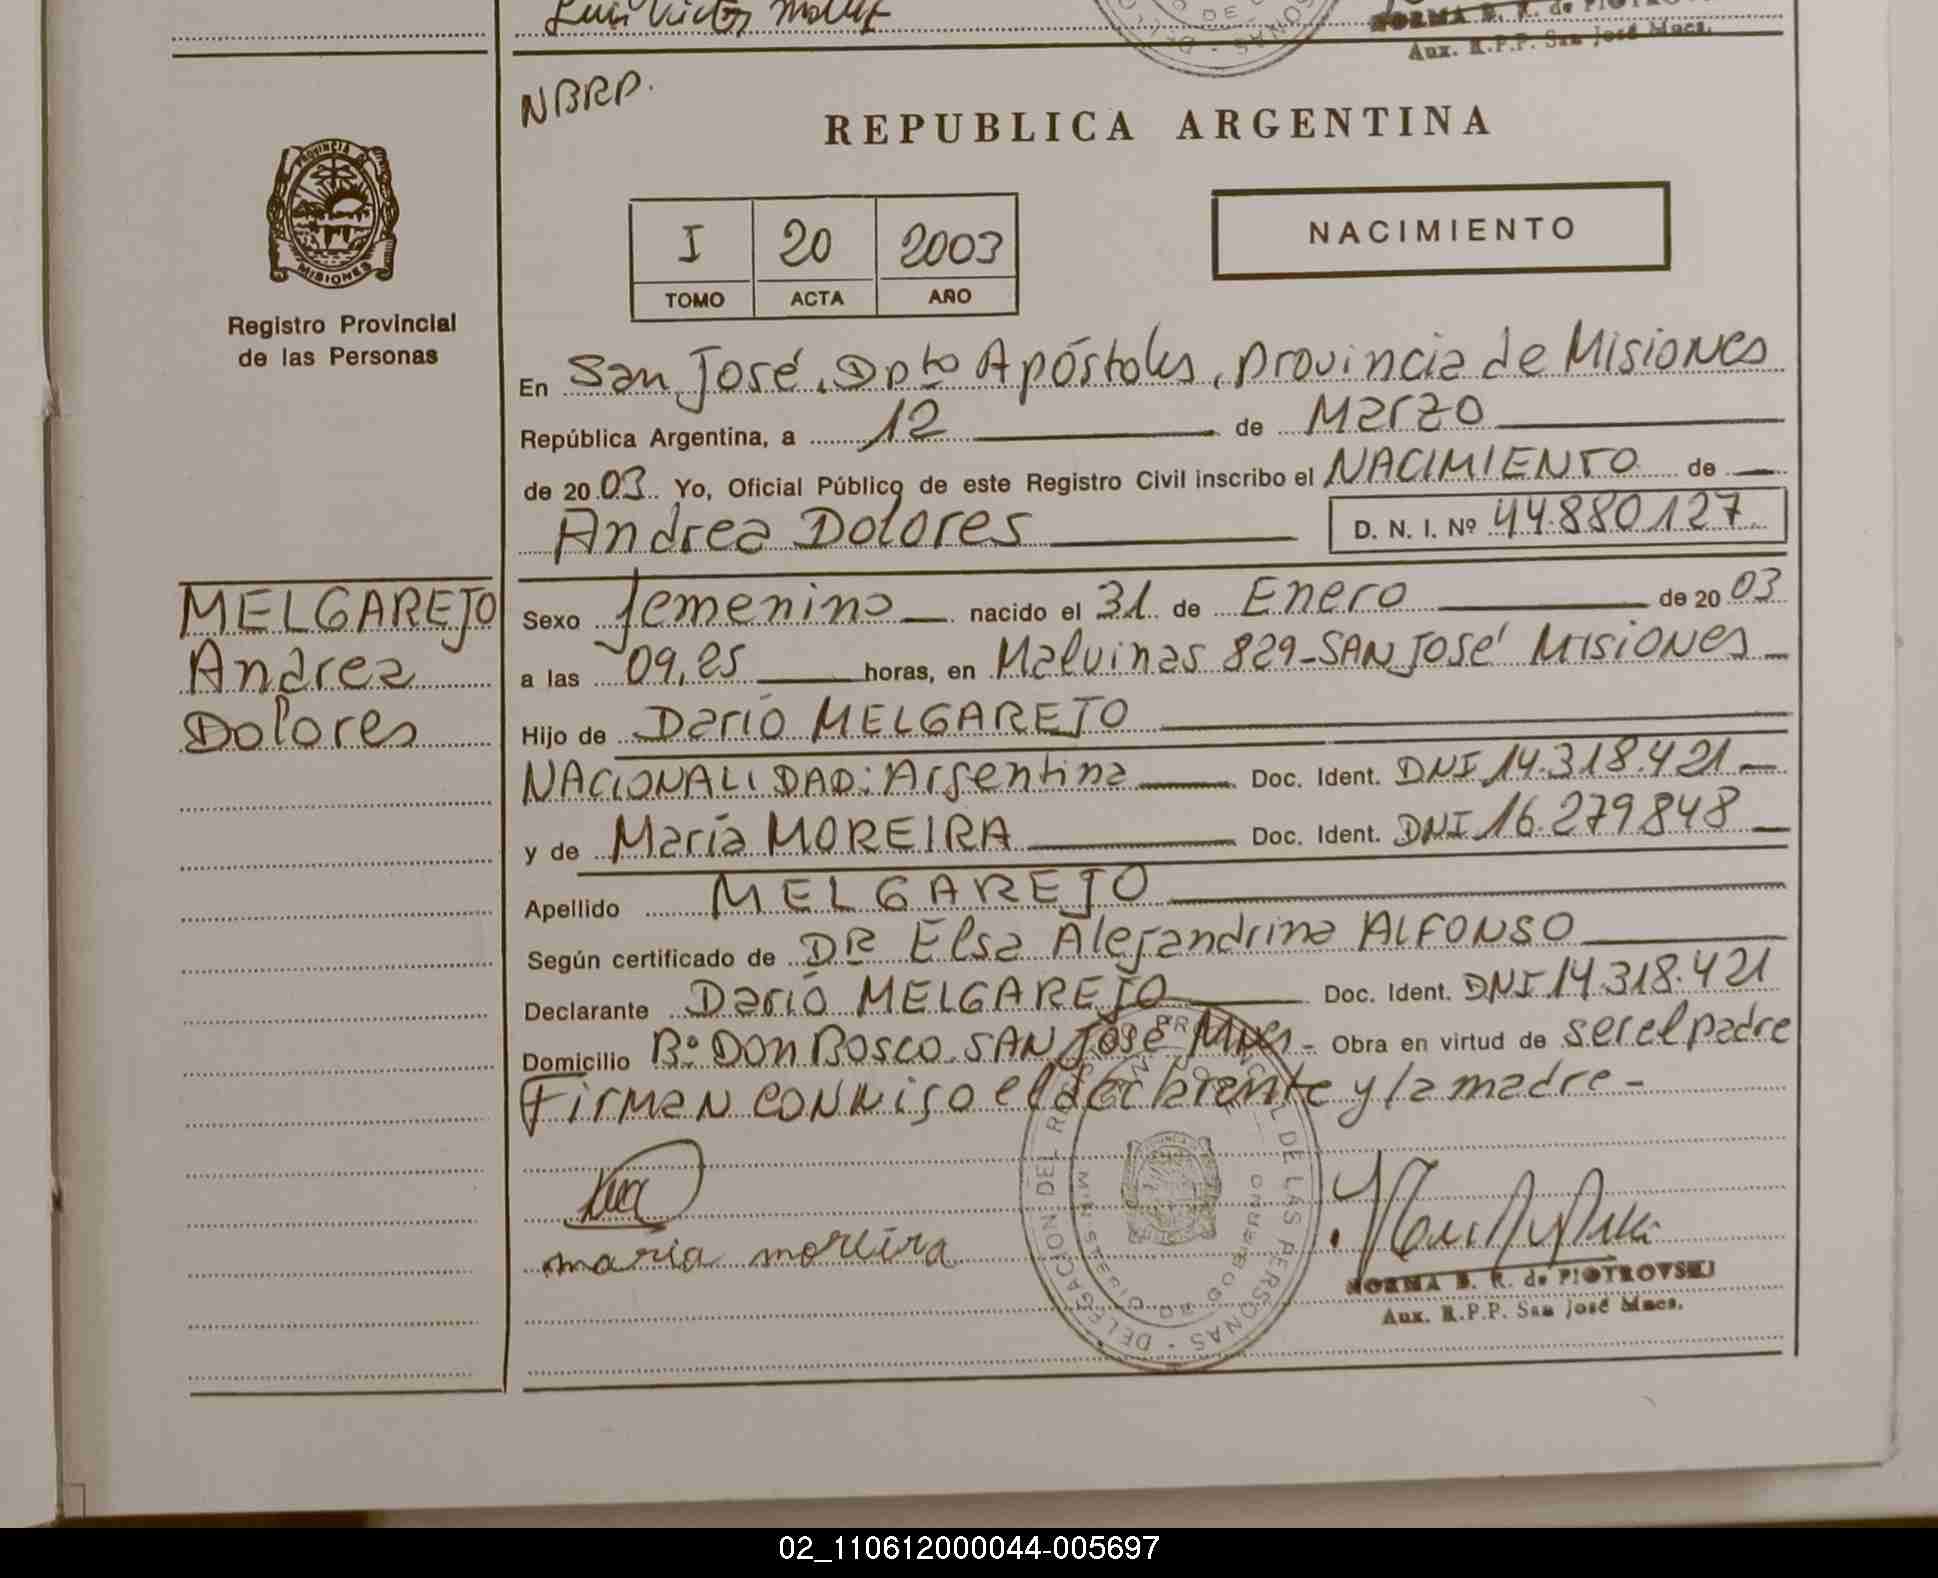 Luis Victor
NORMA B. R. de PIOTROVSKI
Aux. R.P.P. San José Mnes.
NBRP.
REPUBLICA ARGENTINA
PROVINCIA DE
MISIONES
Registro Provincial
de las Personas
I 20 2003
TOMO ACTA AÑO
NACIMIENTO
En San José, Dpto Apóstoles, provincia de Misiones
República Argentina, a 12 de Marzo
de 2003 Yo, Oficial Público de este Registro Civil inscribo el NACIMIENTO de
Andrea Dolores D. N. I. Nº 44.880.127
MELGAREJO
Andrea
Dolores
Sexo femenino nacido el 31 de Enero de 20 03
a las 09,25 horas, en Malvinas 829-SAN José Misiones
Hijo de Darío MELGAREJO
NACIONALIDAD: Argentina Doc. Ident. DNI 14.318.421
y de María MOREIRA Doc. Ident. DNI 16.279848
Apellido MELGAREJO
Según certificado de DR Elsa Alejandrina ALFONSO
Declarante Darío MELGAREJO Doc. Ident. DNI 14.318.421
Domicilio Bº DON BOSCO. SAN José Mnes - Obra en virtud de ser el padre
Firman conmigo el declarante y la madre -
maria moreira
DELEGACION DEL REGISTRO PROVINCIAL DE LAS PERSONAS
NORMA B. R. de PIOTROVSKI
Aux. R.P.P. San José Mnes.
02_110612000044-005697